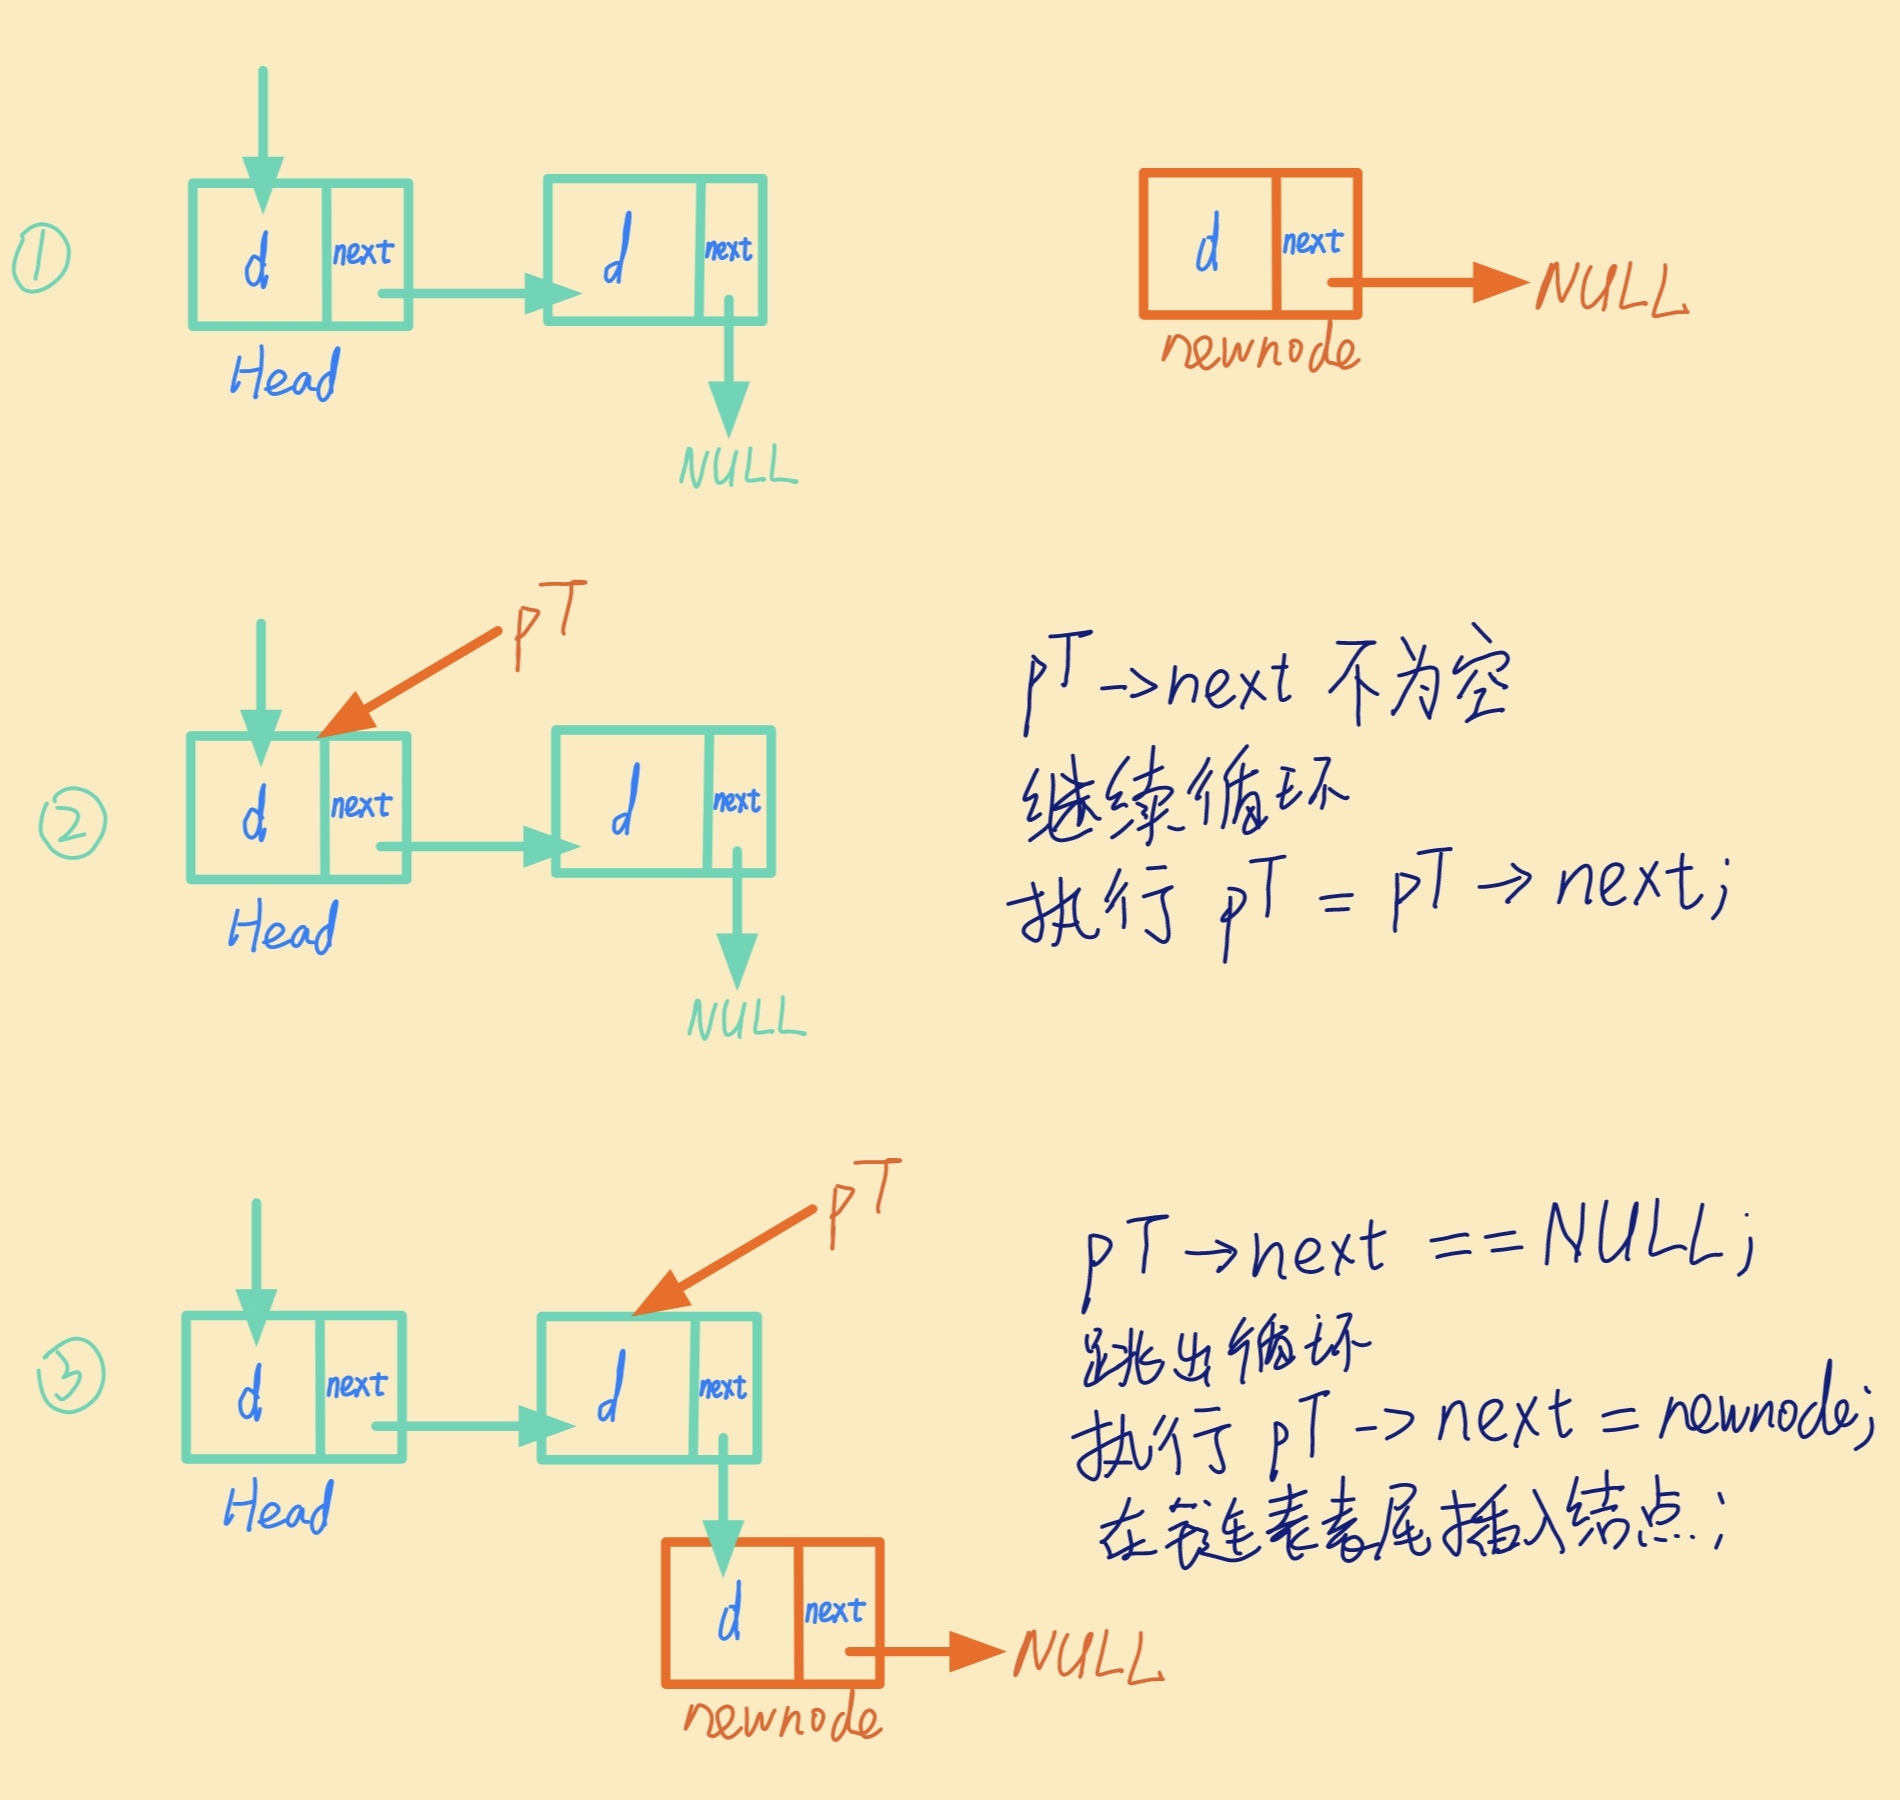 ①
d next
d next
d next
NULL
newnode
Head
NULL
pT
②
d next
d next
Head
NULL
pT->next 不为空
继续循环
执行 pT = pT->next;
pT
③
d next
d next
Head
d next
NULL
newnode
pT->next == NULL;
跳出循环
执行 pT->next = newnode;
在链表表尾插入结点;